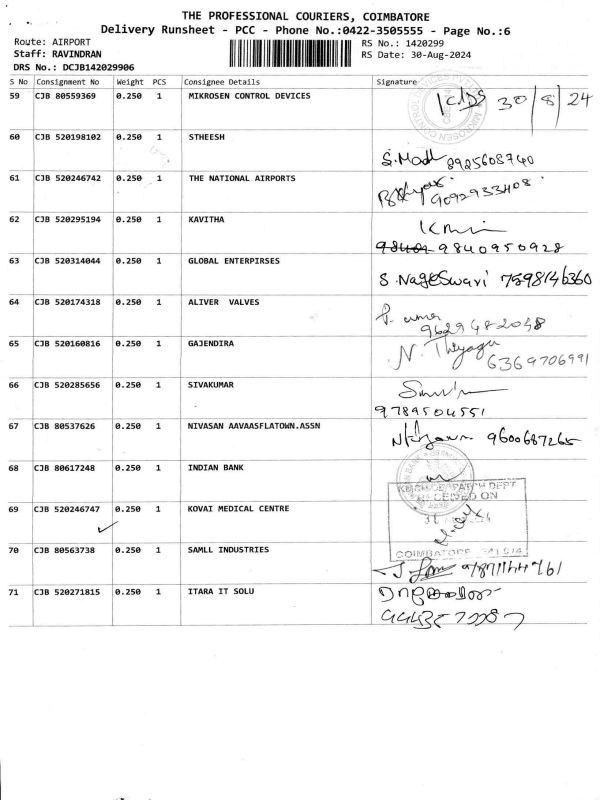 THE PROFESSIONAL COURIERS, COIMBATORE
Delivery Runsheet - PCC - Phone No.:0422-3505555 - Page No.:6
Route: AIRPORT
RS No.: 1420299
Staff: RAVINDRAN
RS Date: 30-Aug-2024
DRS No.: DCJB142029906
S No Consignment No Weight PCS Consignee Details Signature
59 CJB 80559369 0.250 1 MIKROSEN CONTROL DEVICES 30/8/24
60 CJB 520198102 0.250 1 STHEESH
8925608740
61 CJB 520246742 0.250 1 THE NATIONAL AIRPORTS
9092933408
62 CJB 520295194 0.250 1 KAVITHA
9840950928
63 CJB 520314044 0.250 1 GLOBAL ENTERPIRSES
S. Nageswari 7598146360
64 CJB 520174318 0.250 1 ALIVER VALVES
9629482048
65 CJB 520160816 0.250 1 GAJENDIRA
N. Thiyagu 6369706991
66 CJB 520285656 0.250 1 SIVAKUMAR
9789504551
67 CJB 80537626 0.250 1 NIVASAN AAVAASFLATOWN.ASSN
9600687265
68 CJB 80617248 0.250 1 INDIAN BANK
69 CJB 520246747 0.250 1 KOVAI MEDICAL CENTRE
RECEIVED ON
COIMBATORE - 641 014
70 CJB 80563738 0.250 1 SAMLL INDUSTRIES
71 CJB 520271815 0.250 1 ITARA IT SOLU